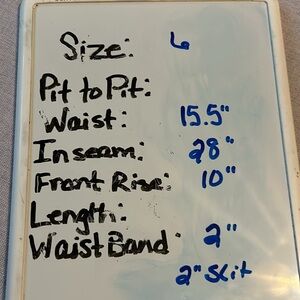 Size: 6
Pit to Pit:
Waist: 15.5"
Inseam: 28"
Front Rise: 10"
Length:
Waist Band: 2"
2" slit